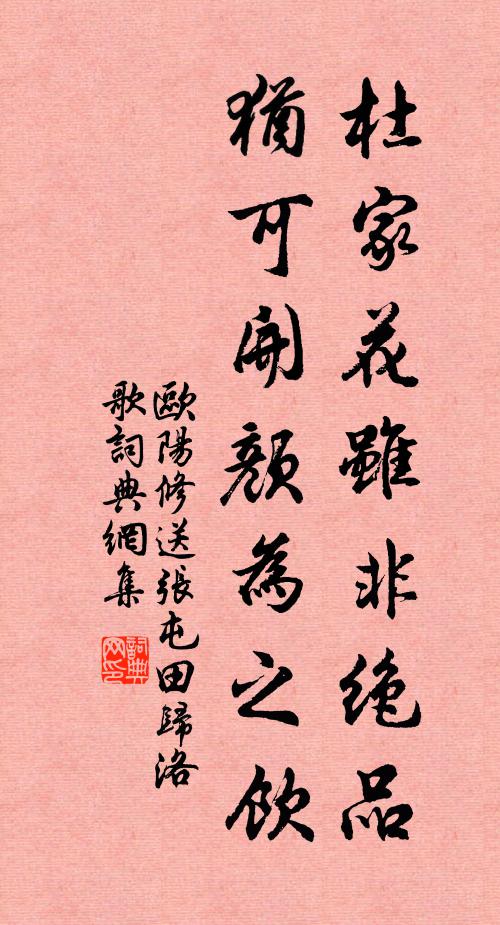 杜家花雖非絶品
猶可開顏為之飲
歐陽修送張屯田歸洛
歌詞典網集
詞典网印